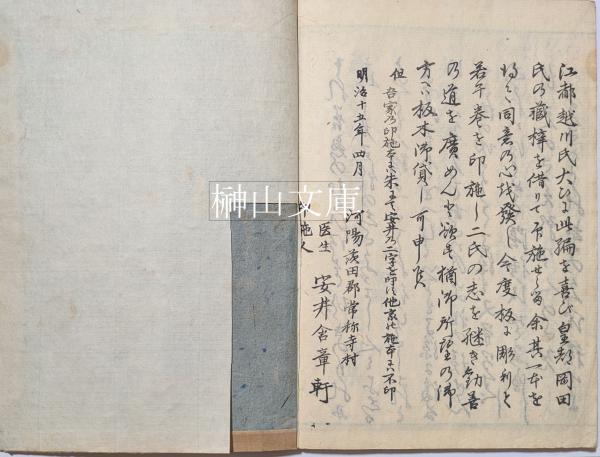 江都越川氏大ひに此編を喜び皇都岡田
氏の蔵梓を借りて印施せらる余其一本を
得て同意の心を發し今度板に彫刻して
若干巻を印施し二氏の志を継き勧善
の道を廣めんと欲す猶御所望の御
方へハ板木御貸し可申候
但 吾家の印施本ハ朱にて安井の二字を印す他家の施本ハ不印
明治十五年四月
河陽茨田郡常称寺村
医生
施人 安井含章軒
榊山文庫